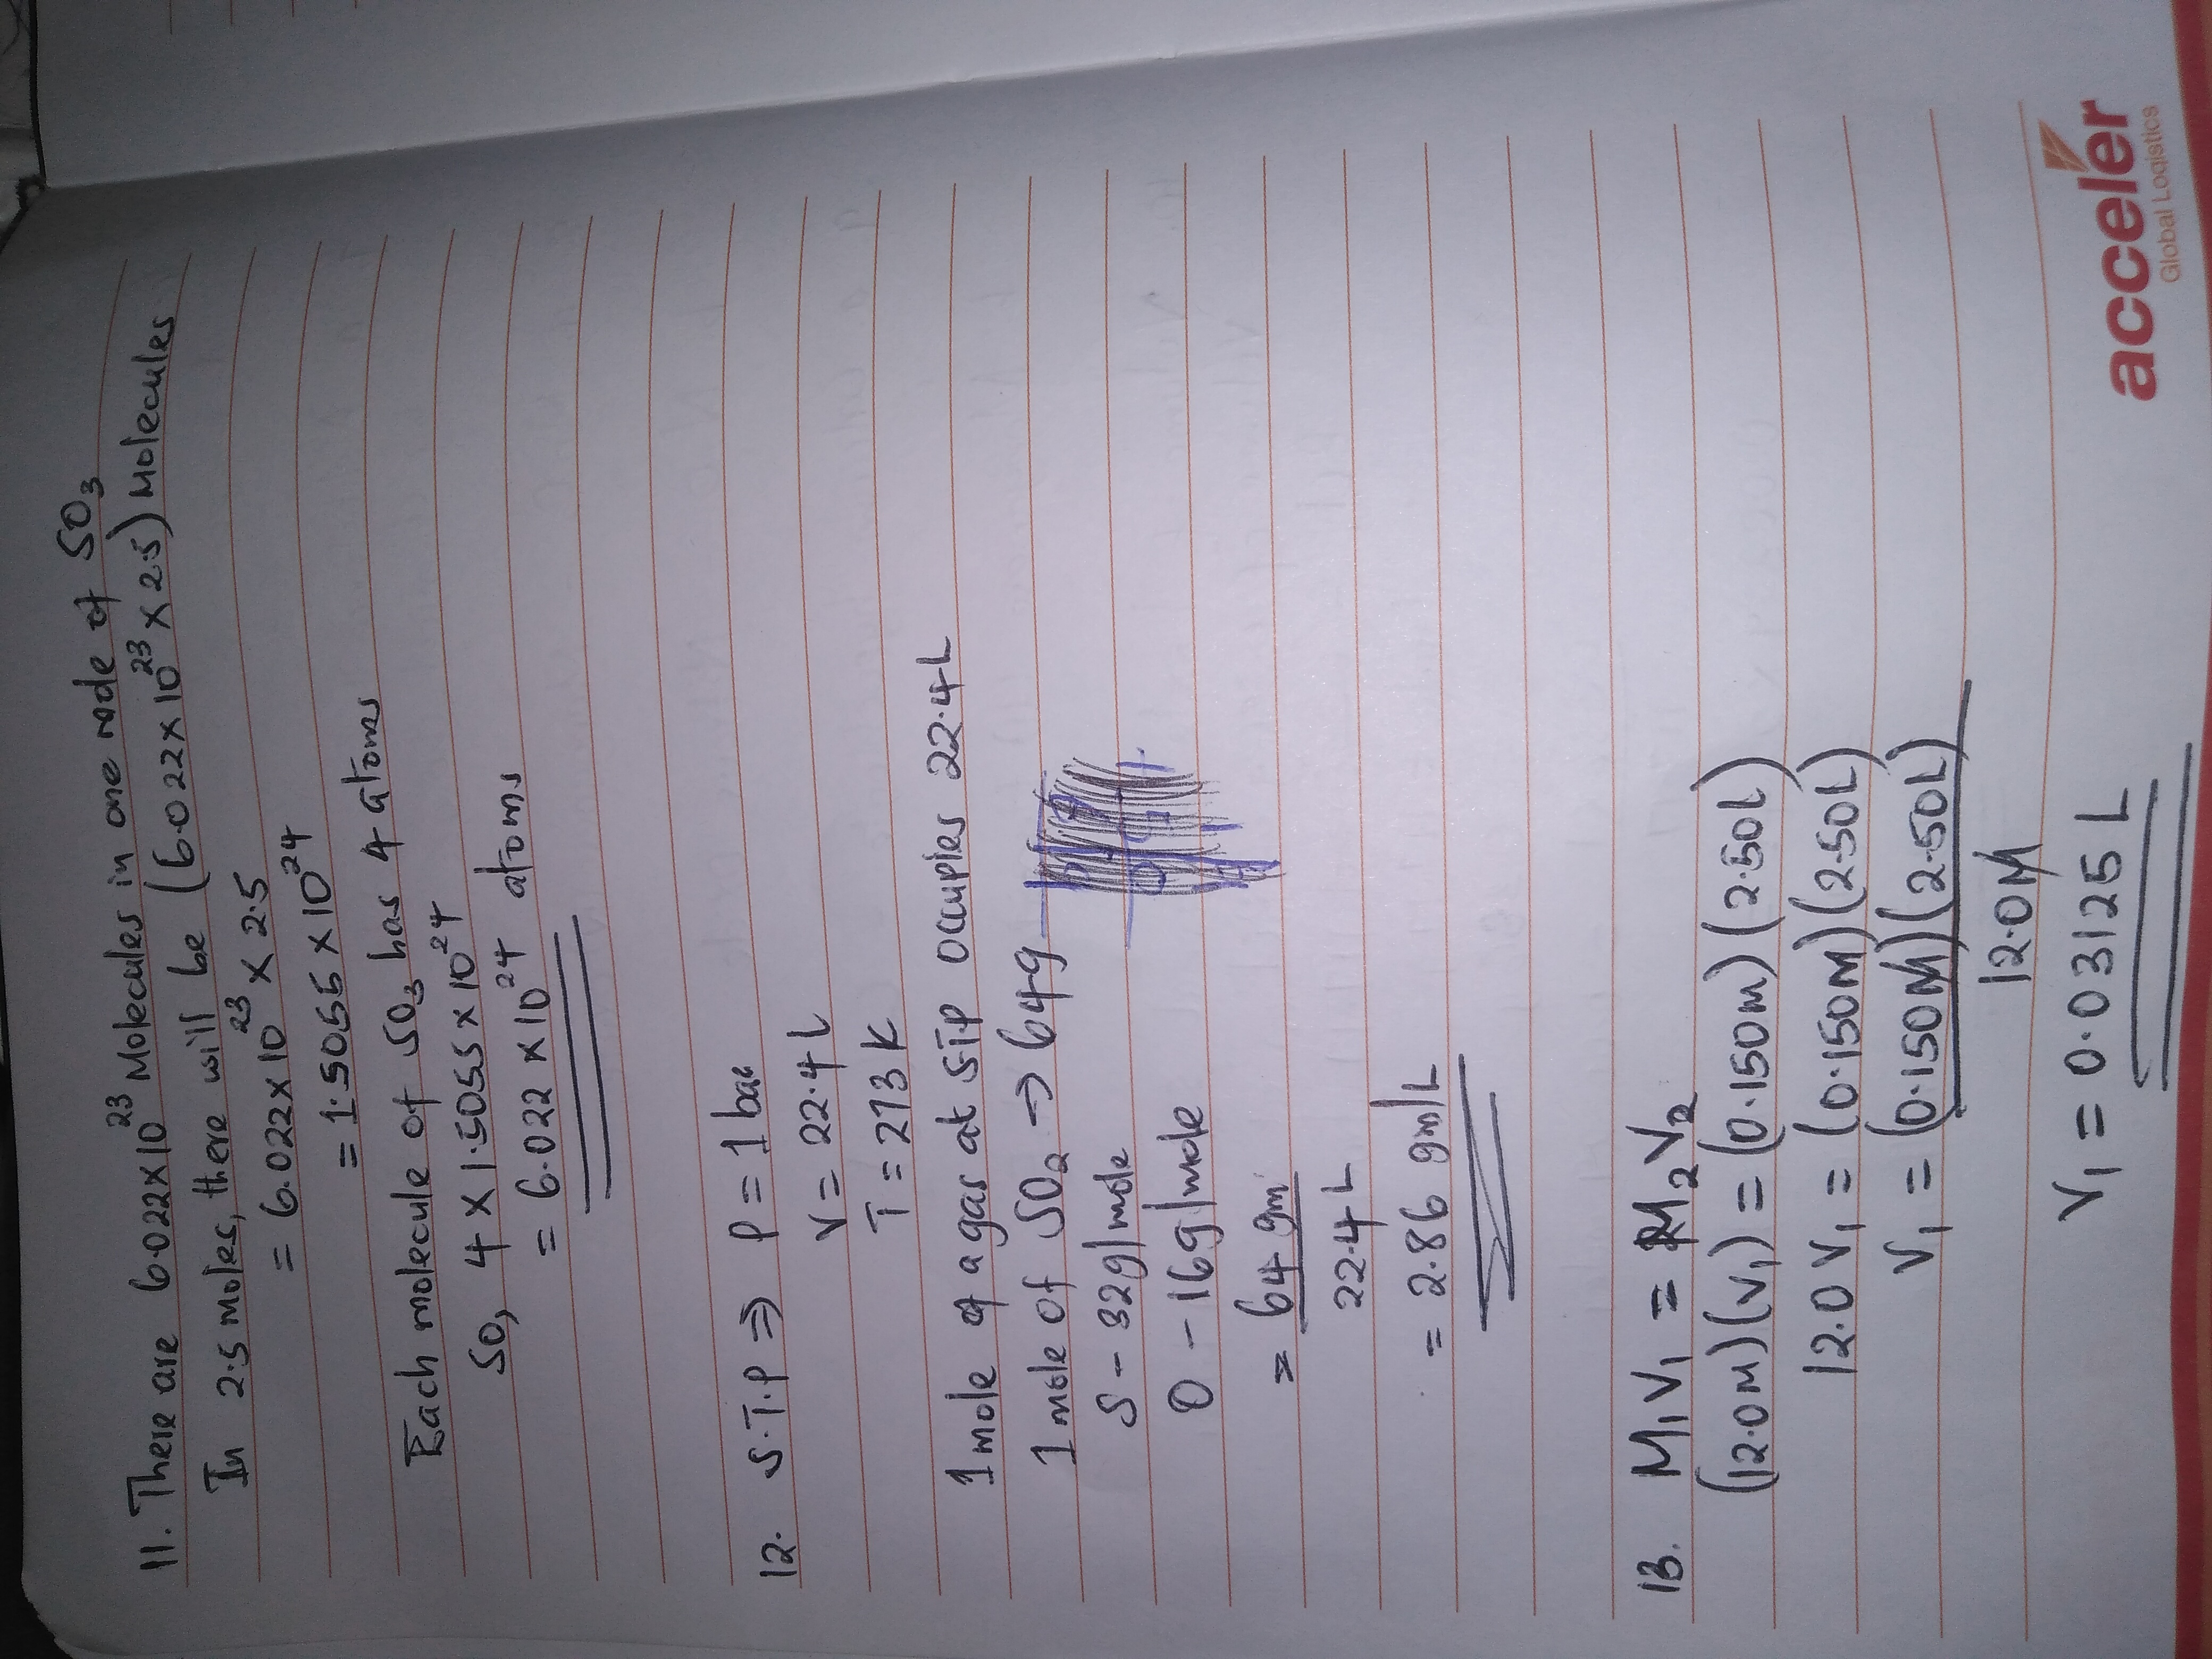 11. There are 6.022x10²³ Molecules in one mole of SO₃
In 2.5 moles, there will be (6.022x10²³ x 2.5) Molecules
= 6.022x10²³ x 2.5
= 1.5055 x 10²⁴
Each molecule of SO₃ has 4 atoms
So, 4 x 1.5055 x 10²⁴
= 6.022 x 10²⁴ atoms
12. S.T.P ⇒ P = 1 bar
V = 22.4 L
T = 273 K
1 mole of a gas at S.T.P occupies 22.4L
1 mole of SO₂ → 64g
S - 32g/mole
O - 16g/mole
= 64 gm
22.4 L
= 2.86 gm/L
13. M₁V₁ = M₂V₂
(12.0M)(V₁) = (0.150M)(2.50L)
12.0 V₁ = (0.150M)(2.50L)
V₁ = (0.150M)(2.50L)
12.0M
V₁ = 0.03125 L
acceler
Global Logistics